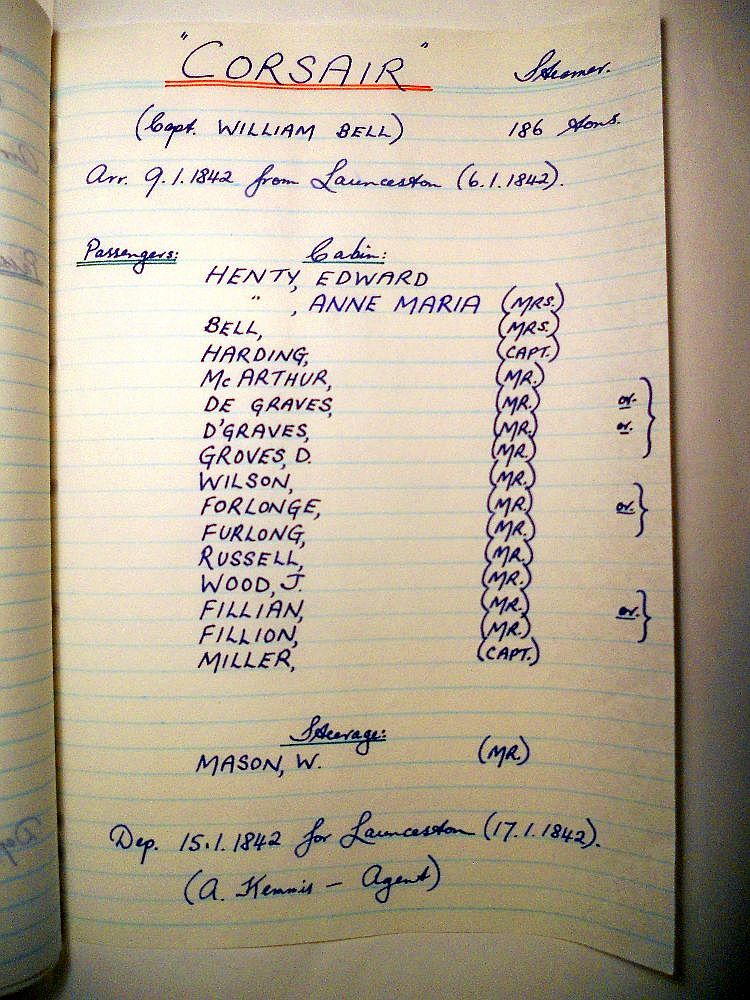 "CORSAIR" Steamer.
(Capt. WILLIAM BELL) 186 tons.
Arr. 9.1.1842 from Launceston (6.1.1842).
Passengers: Cabin:
HENTY, EDWARD
" , ANNE MARIA (MRS.)
BELL, (MRS.)
HARDING, (CAPT.)
McARTHUR, (MR.)
DE GRAVES, (MR.) or.
D'GRAVES, (MR.) or.
GROVES, D. (MR.)
WILSON, (MR.)
FORLONGE, (MR.) or.
FURLONG, (MR.)
RUSSELL, (MR.)
WOOD, J. (MR.)
FILLIAN, (MR.) or.
FILLION, (MR.)
MILLER, (CAPT.)
Steerage:
MASON, W. (MR.)
Dep. 15.1.1842 for Launceston (17.1.1842).
(A. Kemmis - Agent)